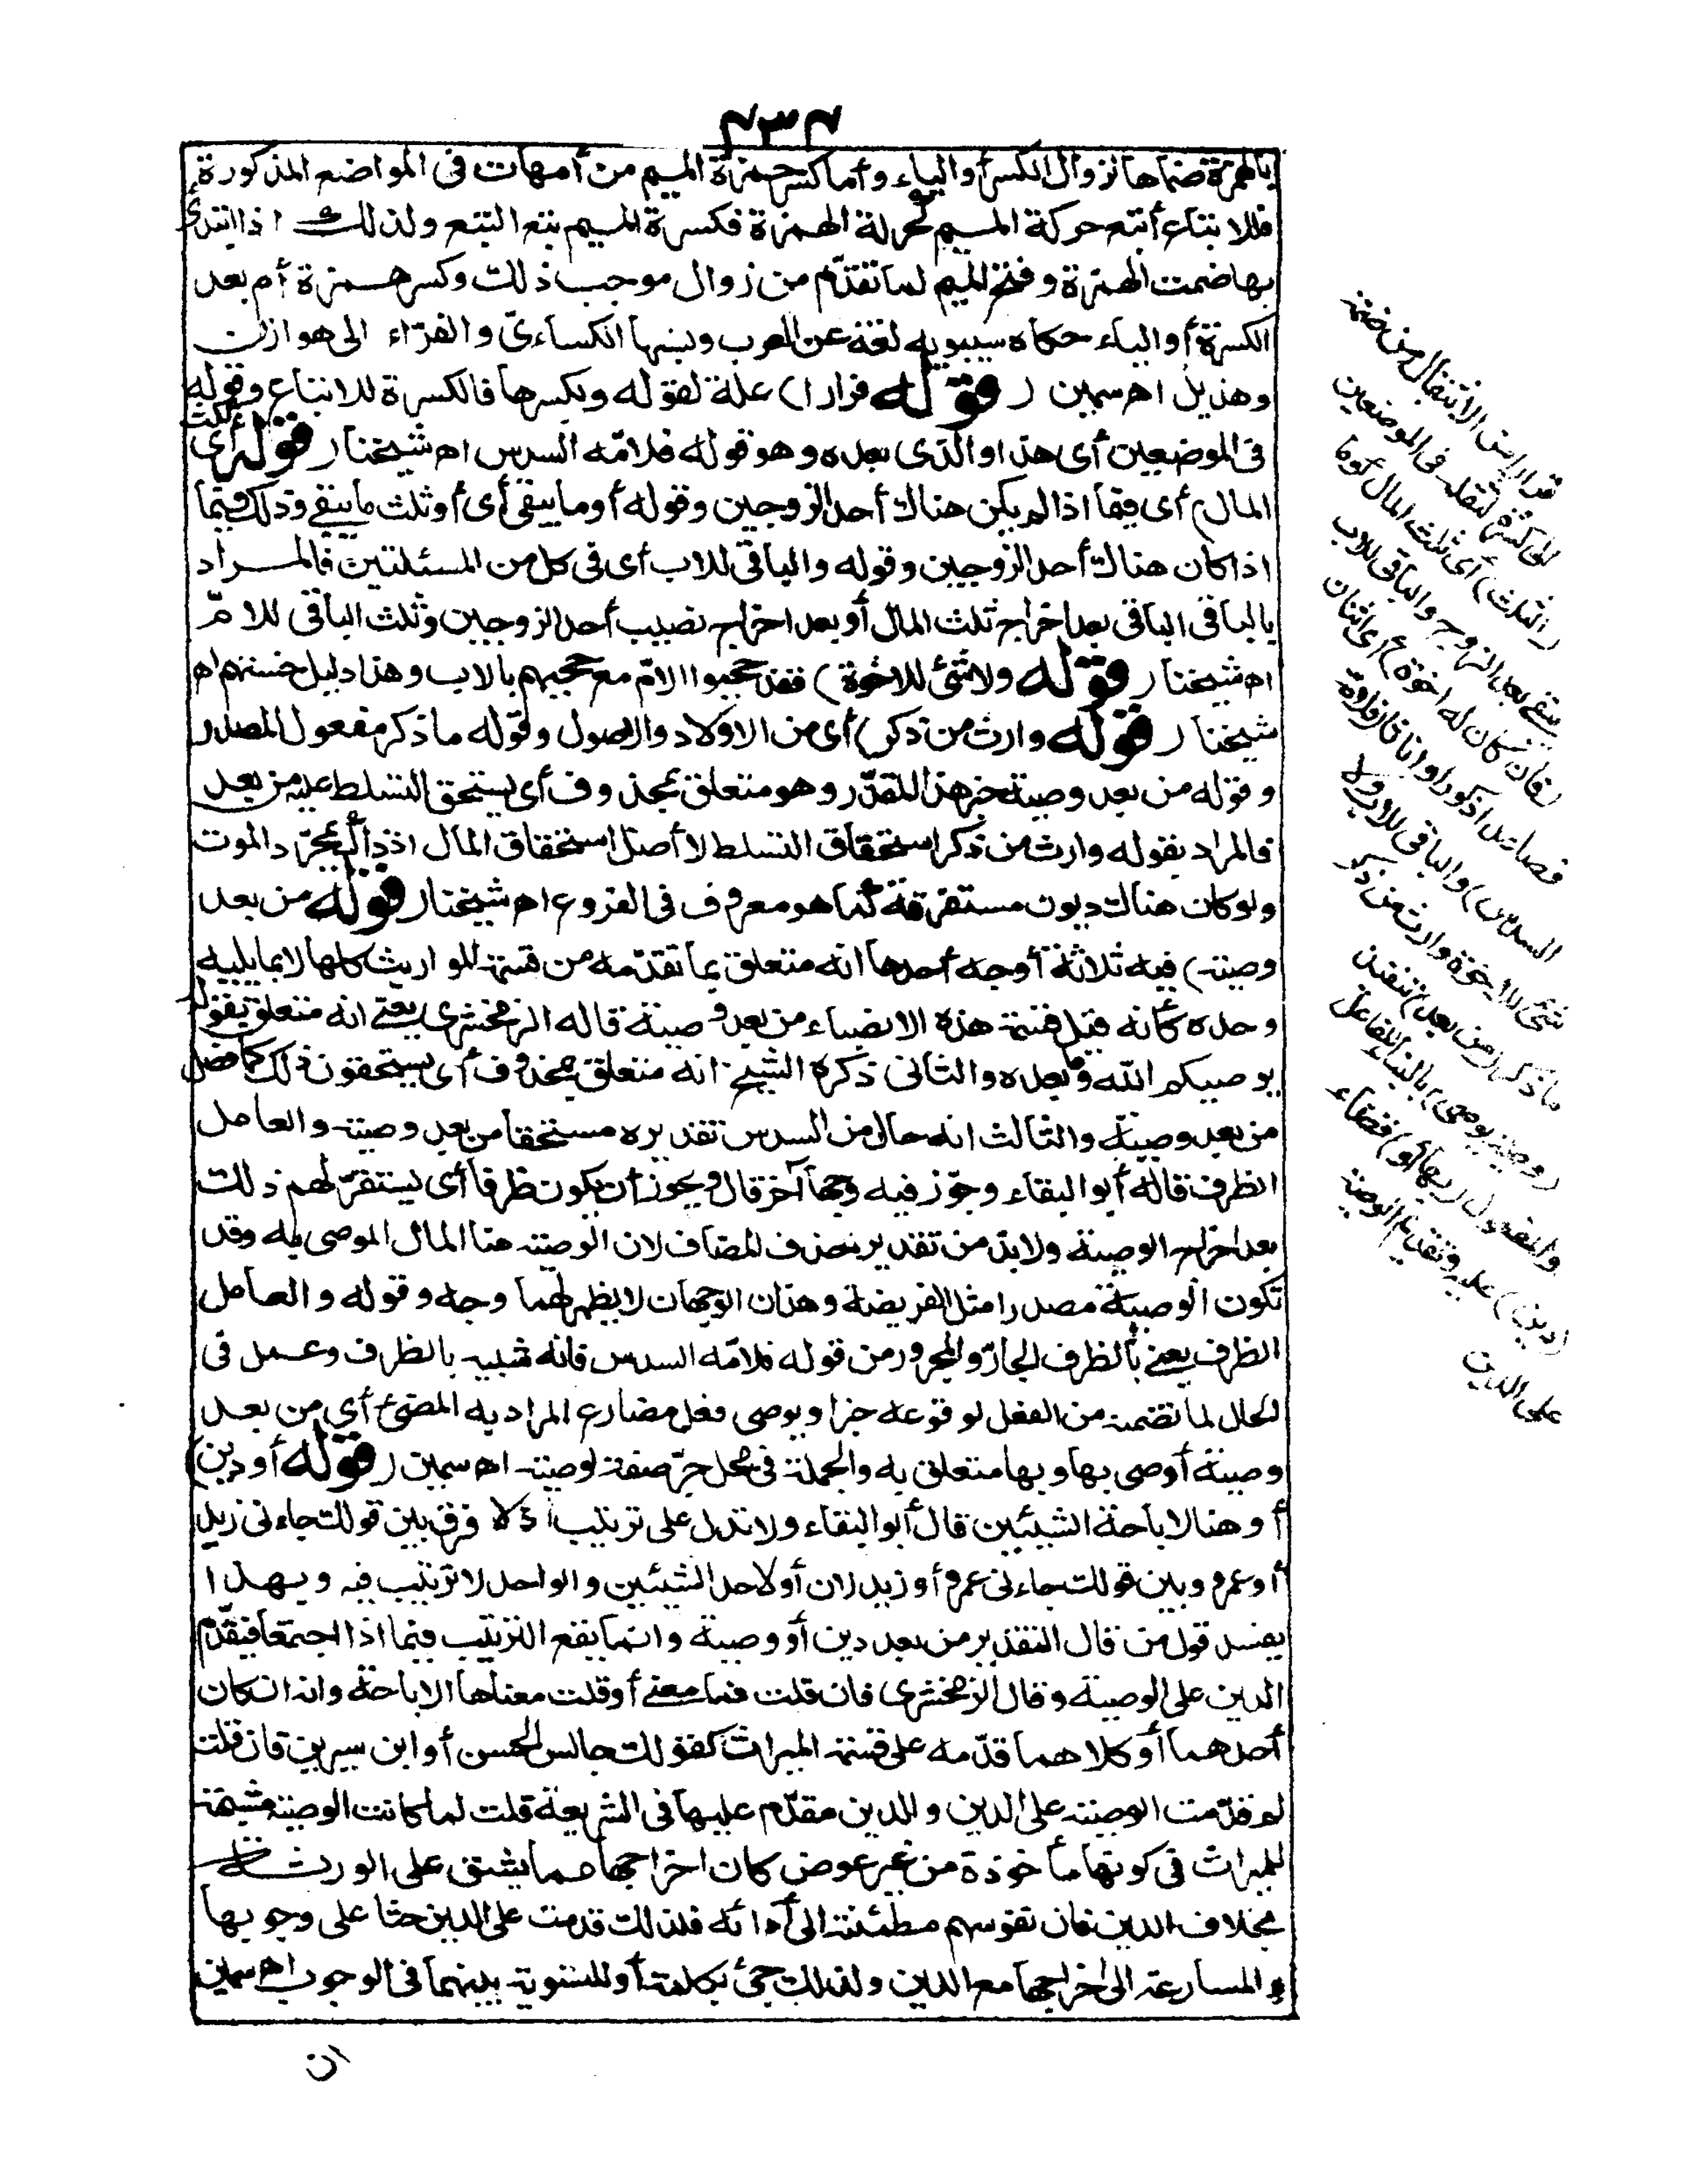 ٤٣٤
بالهمزة ضمها لزوال الكسر أو الياء وأما كسر حمزة الميم من أمهات فى المواضع المذكورة
فللاتباع أتبع حركة الميم لحركة الهمزة فكسرة الميم تبع التبع ولذلك اذا ابتدئ
بها ضمت الهمزة وفتح الميم لما تقدّم من زوال موجب ذلك وكسر همزة أم بعد
الكسرة أو الياء حكاه سيبويه لغة عن العرب ونسبها الكسائىّ والفرّاء الى هوازن
وهذيل اه سمين (قوله فرارا) علة لقوله وبكسرها فالكسرة للاتباع وقوله
فى الموضعين أى هذا والذى بعده وهو قوله فلامّه السدس اه شيخنا (قوله أى ثلث
المال) أى فيما اذا لم يكن هناك أحد الزوجين وقوله أو ما يبقى أى أو ثلث ما يبقى وذلك فيما
اذا كان هناك أحد الزوجين وقوله والباقى للاب أى فى كل من المسئلتين فالمراد
بالباقى الباقى بعد اخراج ثلث المال أو بعد اخراج نصيب أحد الزوجين وثلث الباقى للامّ
اه شيخنا (قوله ولا شئ للاخوة) فقد حجبوا الامّ مع حجبهم بالاب وهذا دليل خستهم اه
شيخنا (قوله وارث من ذكر) أى من الاولاد والاصول وقوله ما ذكر مفعول المصدر
وقوله من بعد وصية خبر هذا المقدّر وهو متعلق بمحذوف أى يستحق التسلط عليه من بعد
فالمراد بقوله وارث من ذكر استحقاق التسلط لا أصل استحقاق المال اذ ذاك بمجرّد الموت
ولو كان هناك ديون مستغرقة كما هو معروف فى الفروع اه شيخنا (قوله من بعد
وصية) فيه ثلاثة أوجه أحدها انه متعلق بما تقدّمه من قسمة المواريث كلها لا بما يليه
وحده كأنه قيل قسمة هذه الانصباء من بعد وصية قاله الزمخشرى يعنى انه متعلق بقوله
يوصيكم الله وما بعده والثانى ذكره الشيخ انه متعلق بمحذوف أى يستحقون ذلك كما فصل
من بعد وصية والثالث انه حال من السدس تقديره مستحقا من بعد وصية والعامل
الظرف قاله أبو البقاء وجوّز فيه وجها آخر قال ويجوز أن يكون ظرفا أى يستقرّ لهم ذلك
بعد اخراج الوصية ولا بدّ من تقدير حذف المضاف لان الوصية هنا المال الموصى به وقد
تكون الوصية مصدرا مثل الفريضة وهذان الوجهان لا يظهر لهما وجه وقوله والعامل
الظرف يعنى بالظرف الجارّ والمجرور من قوله فلامّه السدس فانه شبيه بالظرف وعمل فى
الحال لما تضمنه من الفعل لوقوعه خبرا ويوصى فعل مضارع المراد به المضىّ أى من بعد
وصية أوصى بها وبها متعلق به والجملة فى محل جرّ صفة لوصية اه سمين (قوله أو دين)
أو هنا لاباحة الشيئين قال أبو البقاء ولا تدل على ترتيب اذ لا فرق بين قولك جاءنى زيد
أو عمرو وبين قولك جاءنى عمرو أو زيد لان أو لاحد الشيئين والواحد لا ترتيب فيه وبهذا
يفسد قول من قال التقدير من بعد دين أو وصية وانما يقع الترتيب فيما اذا اجتمعا فيقدّم
الدين على الوصية وقال الزمخشرى فان قلت فما معنى أو قلت معناها الاباحة وانه ان كان
أحدهما أو كلاهما قدّمه على قسمة الميراث كقولك جالس الحسن أو ابن سيرين فان قلت
لم قدّمت الوصية على الدين والدين مقدّم عليها فى الشريعة قلت لما كانت الوصية مشبهة
للميراث فى كونها مأخوذة من غير عوض كان اخراجها مما يشق على الورثة
بخلاف الدين فان نفوسهم مطمئنة الى أدائه فلذلك قدمت على الدين حثا على وجوبها
والمسارعة الى اخراجها مع الدين ولذلك جئ بكلمة أو للتسوية بينهما فى الوجوب اه سمين
ان
فرارا من الانتقال من ضمة
الى كسرة لثقله فى الموضعين
(الثلث) أى ثلث المال أو ما
يبقى بعد الزوج والباقى للاب
(فان كان له اخوة) أى اثنان
فصاعدا ذكورا أو اناثا (فلامّه
السدس) والباقى للاب ولا
شئ للاخوة وارث من ذكر
ما ذكر (من بعد) تنفيذ
(وصية يوصى) بالبناء للفاعل
والمفعول (بها أو) قضاء
(دين) عليه وتقديم الوصية
على الدين